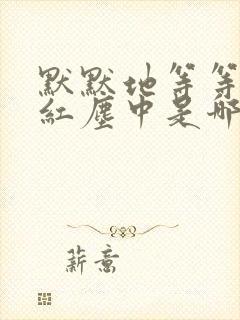 默默地等等
红尘中是那
薪意